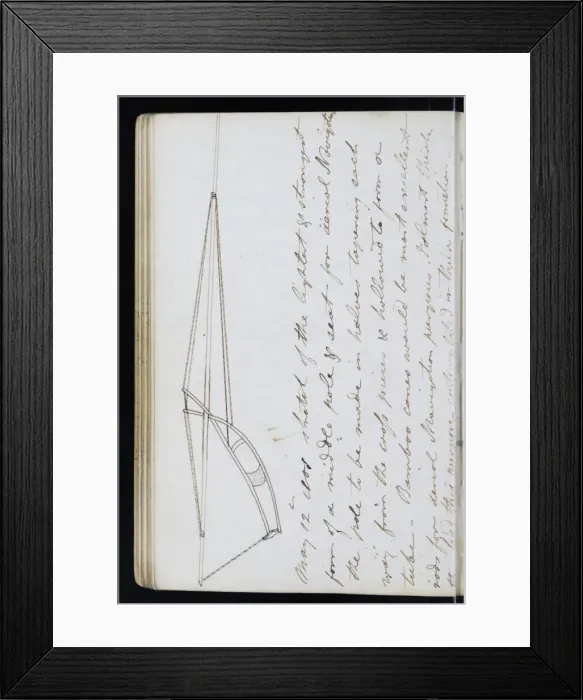 May 12 1808 Sketch of the lightest & strongest
form of a middle pole & seat for aerial Navigation
the pole to be made in halves tapering each
way from the cross pieces & hollowed to form a
tube – Bamboo canes would be most excellent
rods for aerial Navigation purposes. I almost think
this purpose in their formation –